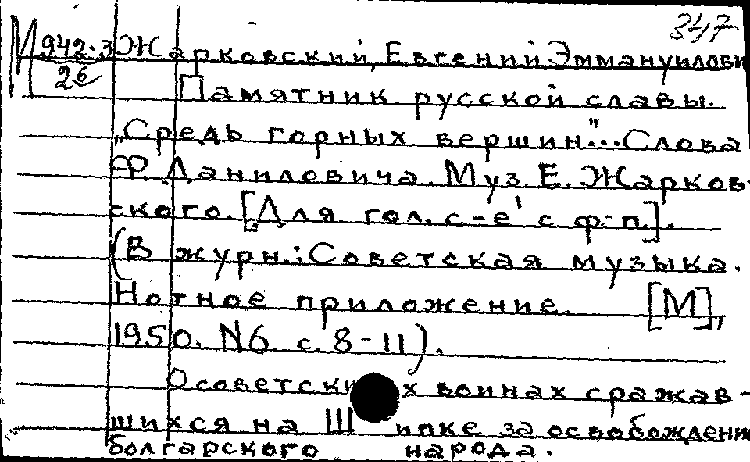 347
М 942-3 Жарковский, Евгений Эммануилови
26
Памятник русской славы.
„Средь горных вершин"... Слова
Ф. Даниловича. Муз. Е. Жарков-
ского. [Для гол. с-е' с ф-п.].
(В журн.: Советская музыка.
Нотное приложение. [М],
1950. N6 с. 8-11).
О советских воинах сражав-
шихся на Шипке за освобождени
болгарского народа.